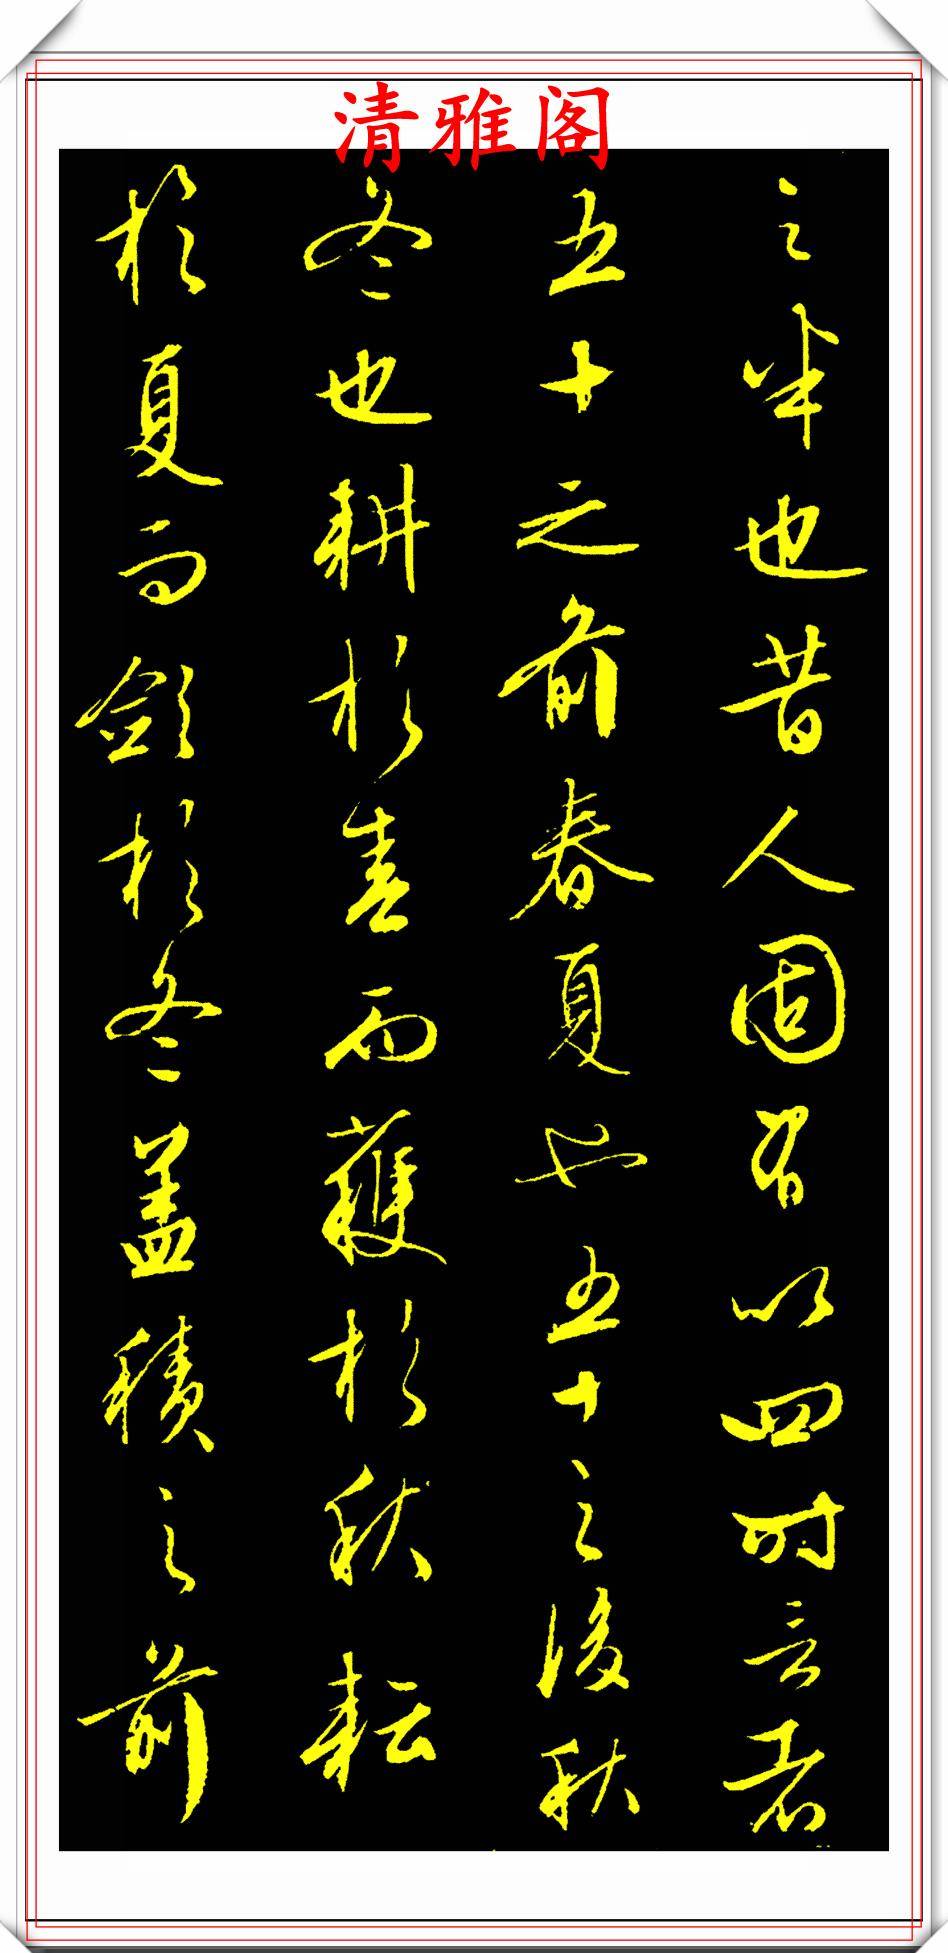 清雅阁
之半也昔人固有以四时言者
五十之前春夏也五十之後秋
冬也耕於春而穫於秋耘
於夏而敛於冬盖积之前